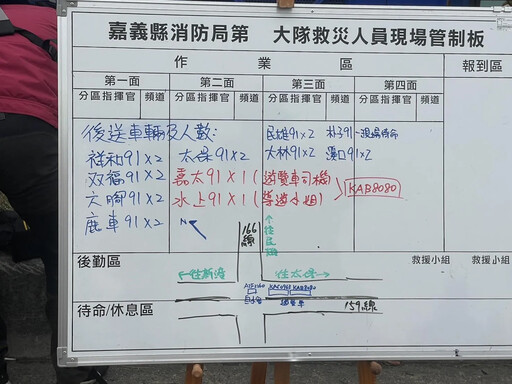 嘉義縣消防局第 大隊救災人員現場管制板
作業區 報到區
第一面 第二面 第三面 第四面
分區指揮官 頻道 分區指揮官 頻道 分區指揮官 頻道 分區指揮官 頻道
後送車輛及人數: 民雄91×2 朴子91-現場待命
祥和91×2 太保91×2 大林91×2 溪口91×2
双福91×2 嘉太91×1(遊覽車司機)
六腳91×2 水上91×1(導遊小姐) KAB8080
鹿草91×2 N
166線
後勤區 救援小組 救援小組
←往新港 往太保→
KAB8080
自小客 遊覽車
待命/休息區 159線